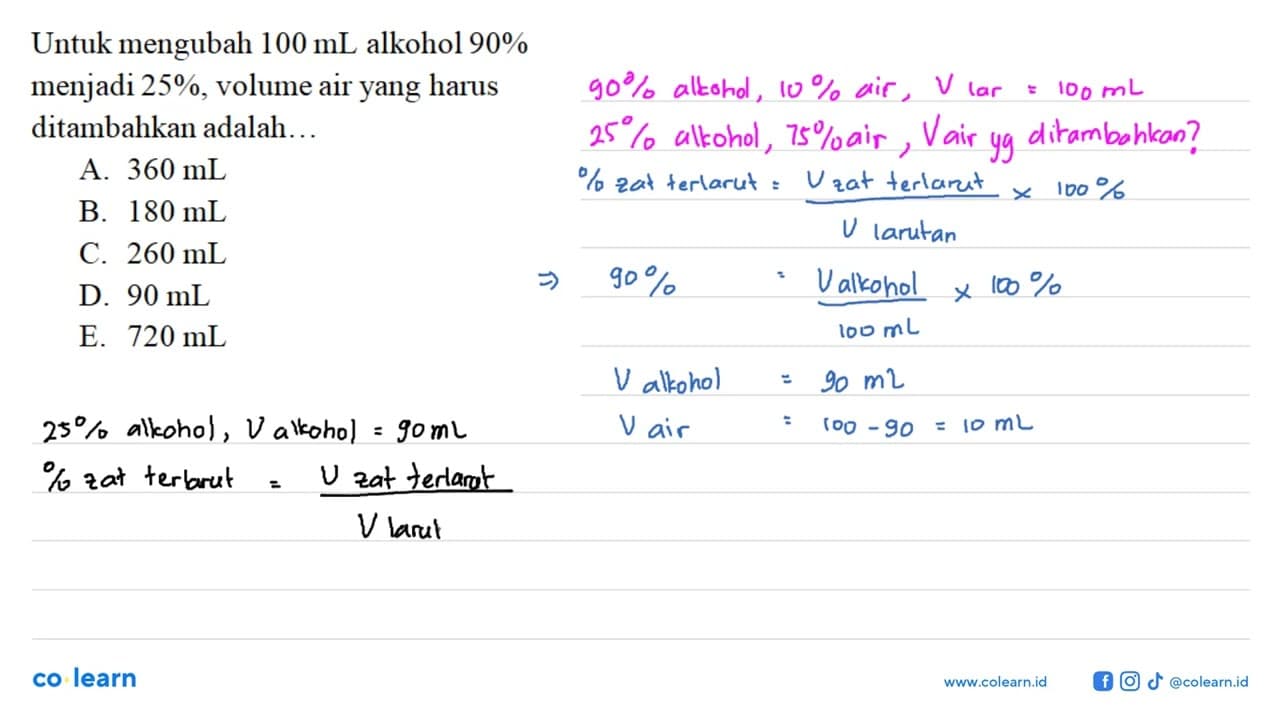 Untuk mengubah 100 mL alkohol 90%
menjadi 25%, volume air yang harus
ditambahkan adalah...
A. 360 mL
B. 180 mL
C. 260 mL
D. 90 mL
E. 720 mL
90% alkohol, 10% air, V lar = 100 mL
25% alkohol, 75% air, V air yg ditambahkan?
% zat terlarut = V zat terlarut × 100%
V larutan
⇒ 90% = V alkohol × 100%
100 mL
V alkohol = 90 mL
V air = 100 - 90 = 10 mL
25% alkohol, V alkohol = 90 mL
% zat terlarut = V zat terlarut
V larut
co learn
www.colearn.id
@colearn.id